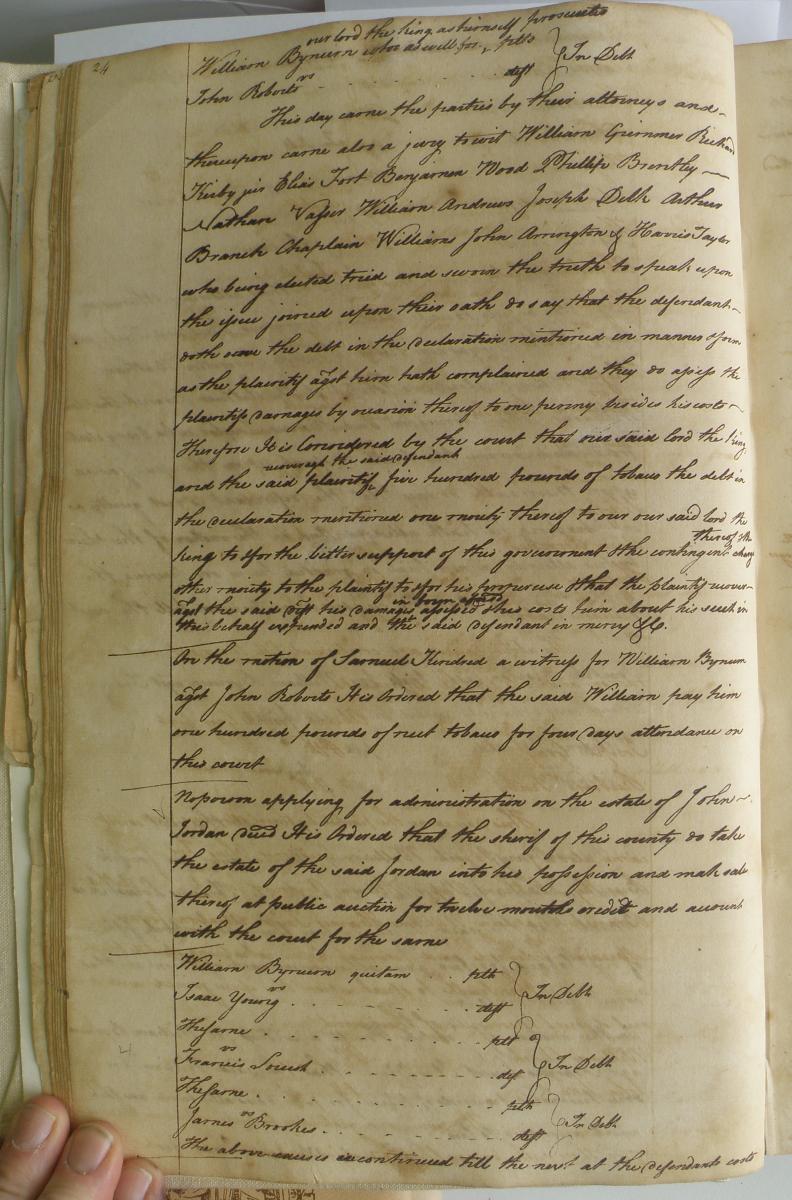 24
our lord the king, as himself prosecutes
William Bynum who as well for, pltf
In Debt
vs
John Roberts deft
This day came the parties by their attorneys and
thereupon came also a jury to wit William Grimmer Richard
Kirby jur Elias Fort Benjamen Wood Phillip Brantley
Nathan Vasser William Andrews Joseph Delk Arthur
Branch Chaplain Williams John Arrington & Harris Taylor
who being elected tried and sworn the truth to speak upon
the issue joined upon their oath do say that the defendant
doth owe the debt in the declaration mentioned in manner & form
as the plaintif agst him hath complained and they do assess the
plaintifs damages by occasion thereof to one penny besides his costs
Therefore It is Considered by the court that our said lord the king
recover agst the said defendant
and the said plaintif, five hundred pounds of tobacco the debt in
the declaration mentioned one moiety thereof to our our said lord the
thereof & the
king to & for the better support of this government & the contingent charg
other moiety to the plaintif to & for his proper use & that the plaintif recover
in form afsd
agst the said deft his damages assessed & his costs him about his suit in
this behalf expended and the said defendant in mercy &c.
On the motion of Samuel Kindred a witness for William Bynum
agst John Roberts It is Ordered that the said William pay him
one hundred pounds of neet tobacco for four days attendance on
this court
No person applying for administration on the estate of John
Jordan decd It is Ordered that the sherif of this county do take
the estate of the said Jordan into his possession and mak sale
thereof at public auction for twelve months credit and account
with the court for the same
William Bynum quitam pltf
vs
In Debt
Isaac Young deft
The same pltf
vs
In Debt
Francis deft
The same pltf
vs
In Debt
James Brookes deft
The above causes continued till the next at the defendants costs